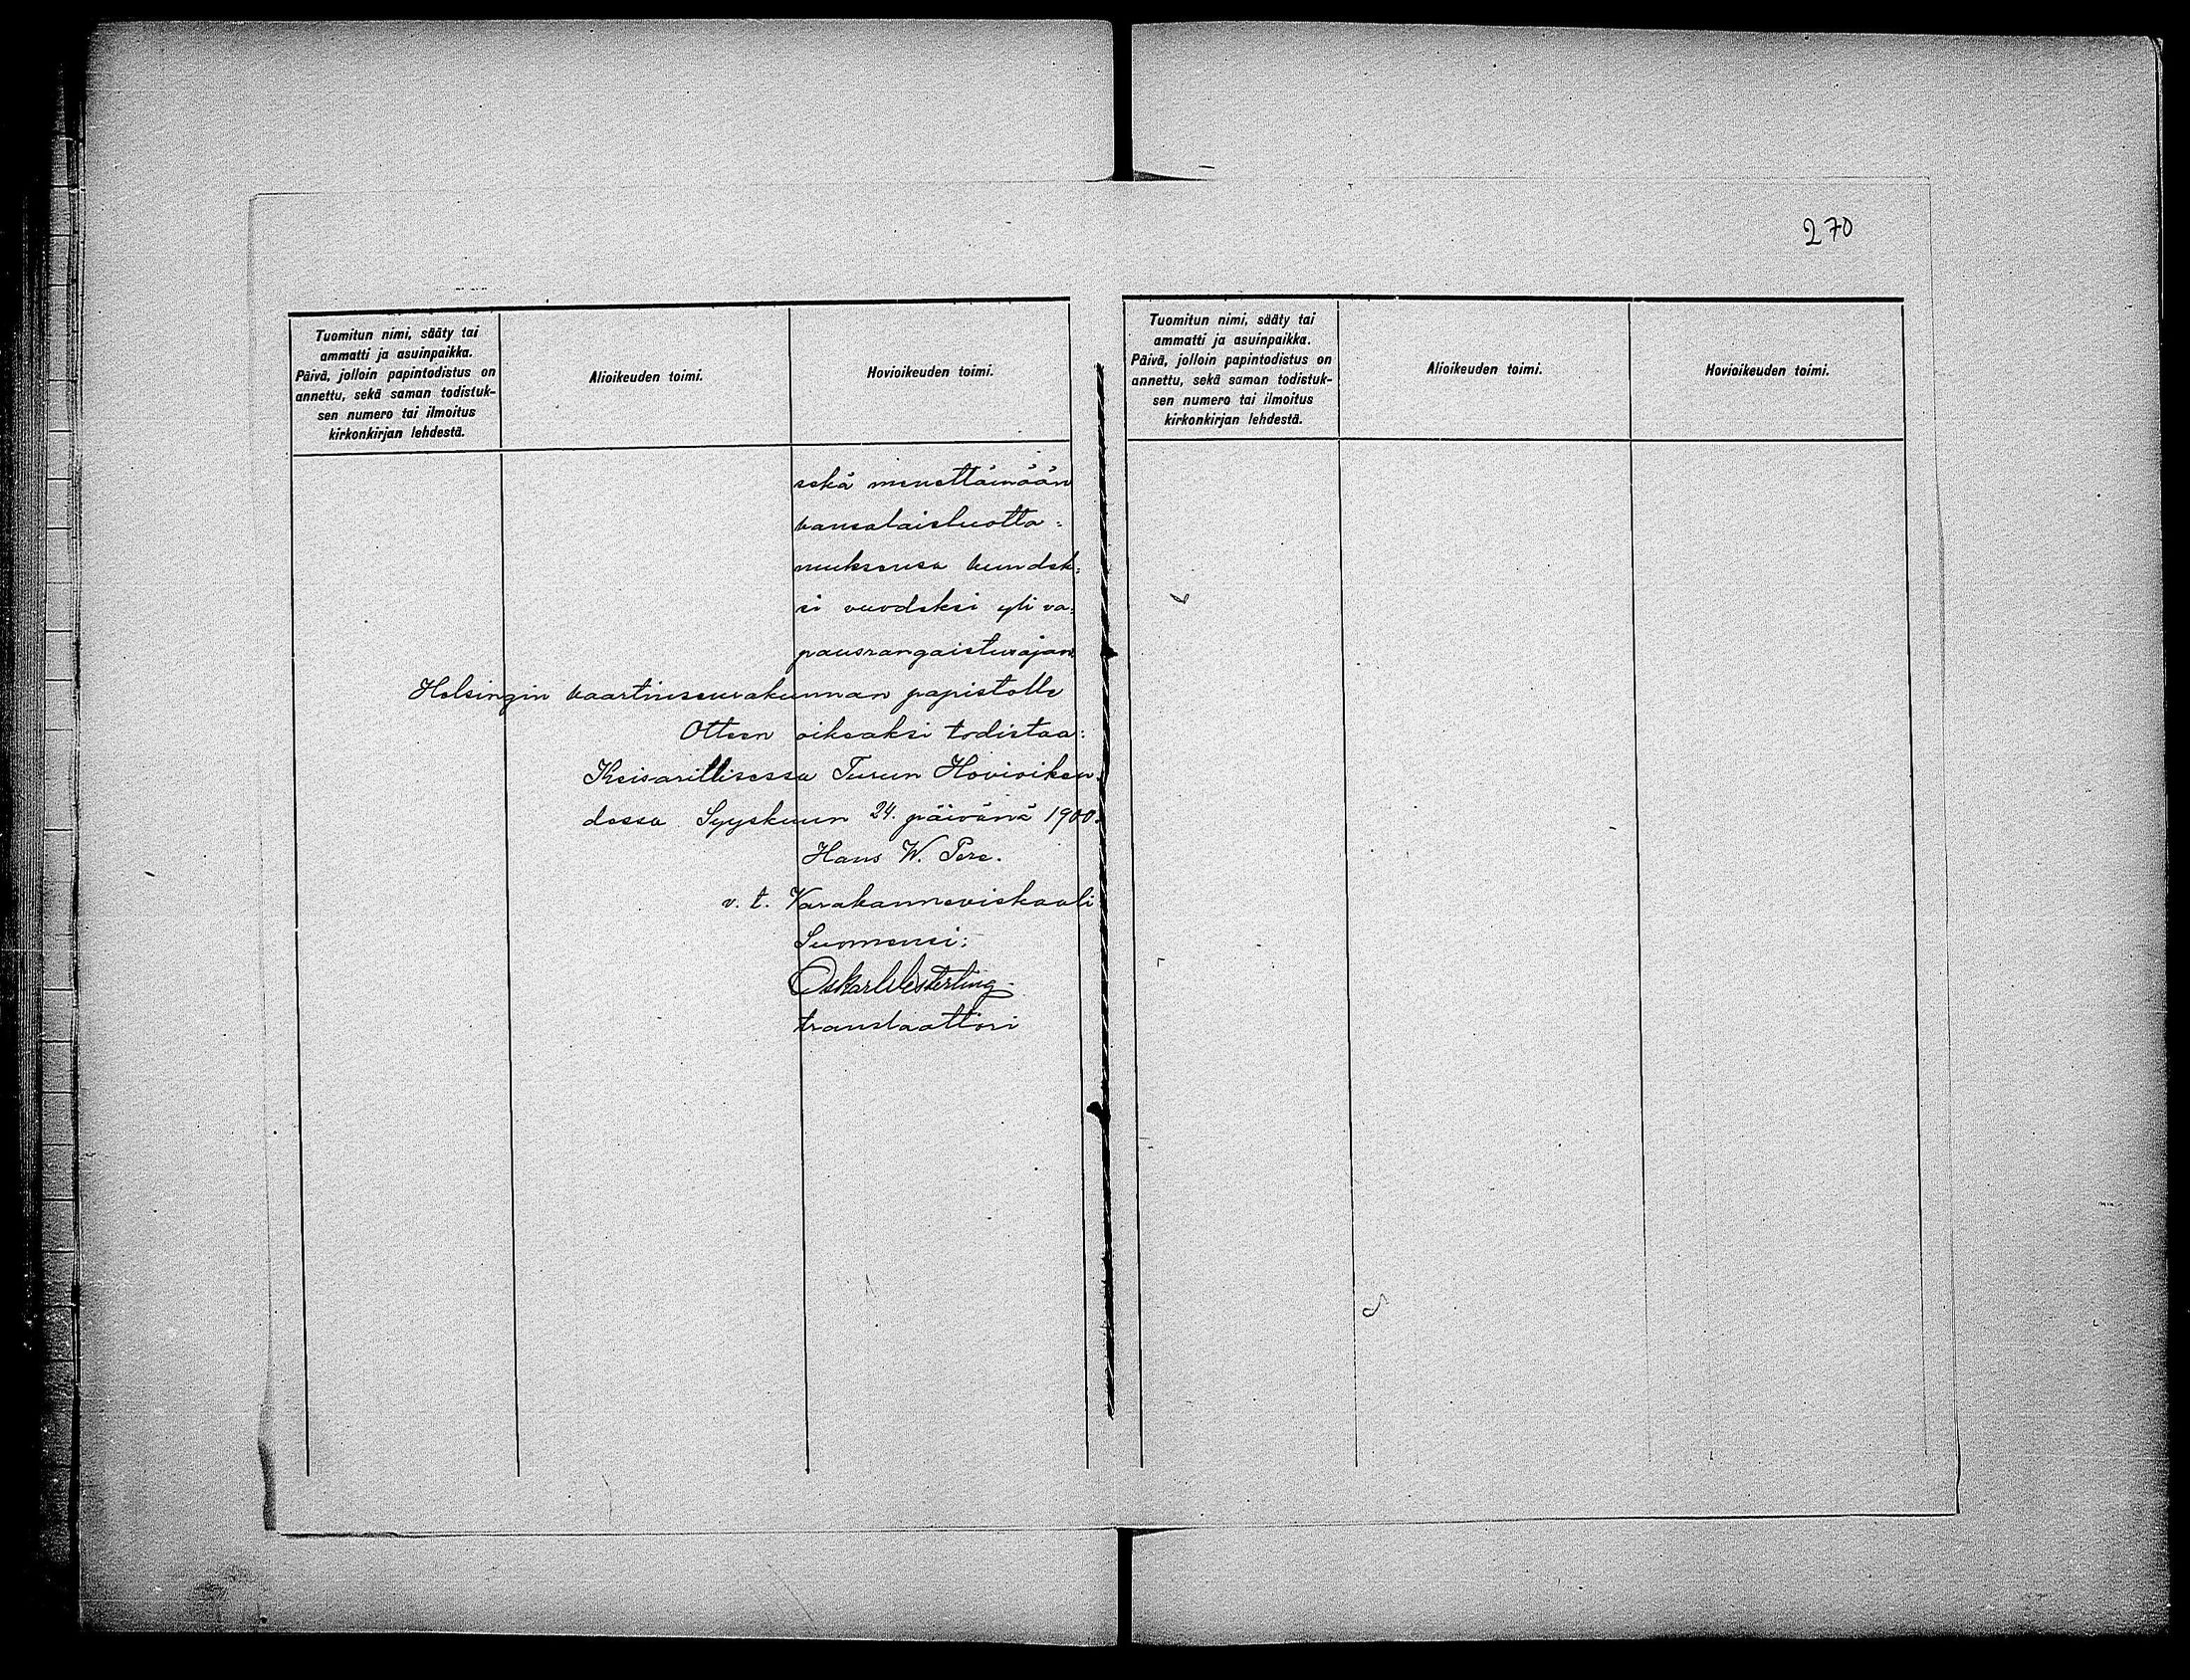 270
Tuomitun nimi, sääty tai
ammatti ja asuinpaikka.
Päivä, jolloin papintodistus on
annettu, sekä saman todistuk-
sen numero tai ilmoitus
kirkonkirjan lehdestä.
Alioikeuden toimi.
Hovioikeuden toimi.
sekä menettämään
kansalaisluotta=
muksensa kuudek=
si vuodeksi yli va=
pausrangaistusajan.
Helsingin kaartinseurakunnan papistolle
Otteen oikeaksi todistaa:
Keisarillisessa Turun Hovioikeu=
dessa Syyskuun 24. päivänä 1900.
Hans W. Pere.
v. t. Varakanneviskaali
Suomensi:
Oskar Westerling
translaattori
Tuomitun nimi, sääty tai
ammatti ja asuinpaikka.
Päivä, jolloin papintodistus on
annettu, sekä saman todistuk-
sen numero tai ilmoitus
kirkonkirjan lehdestä.
Alioikeuden toimi.
Hovioikeuden toimi.